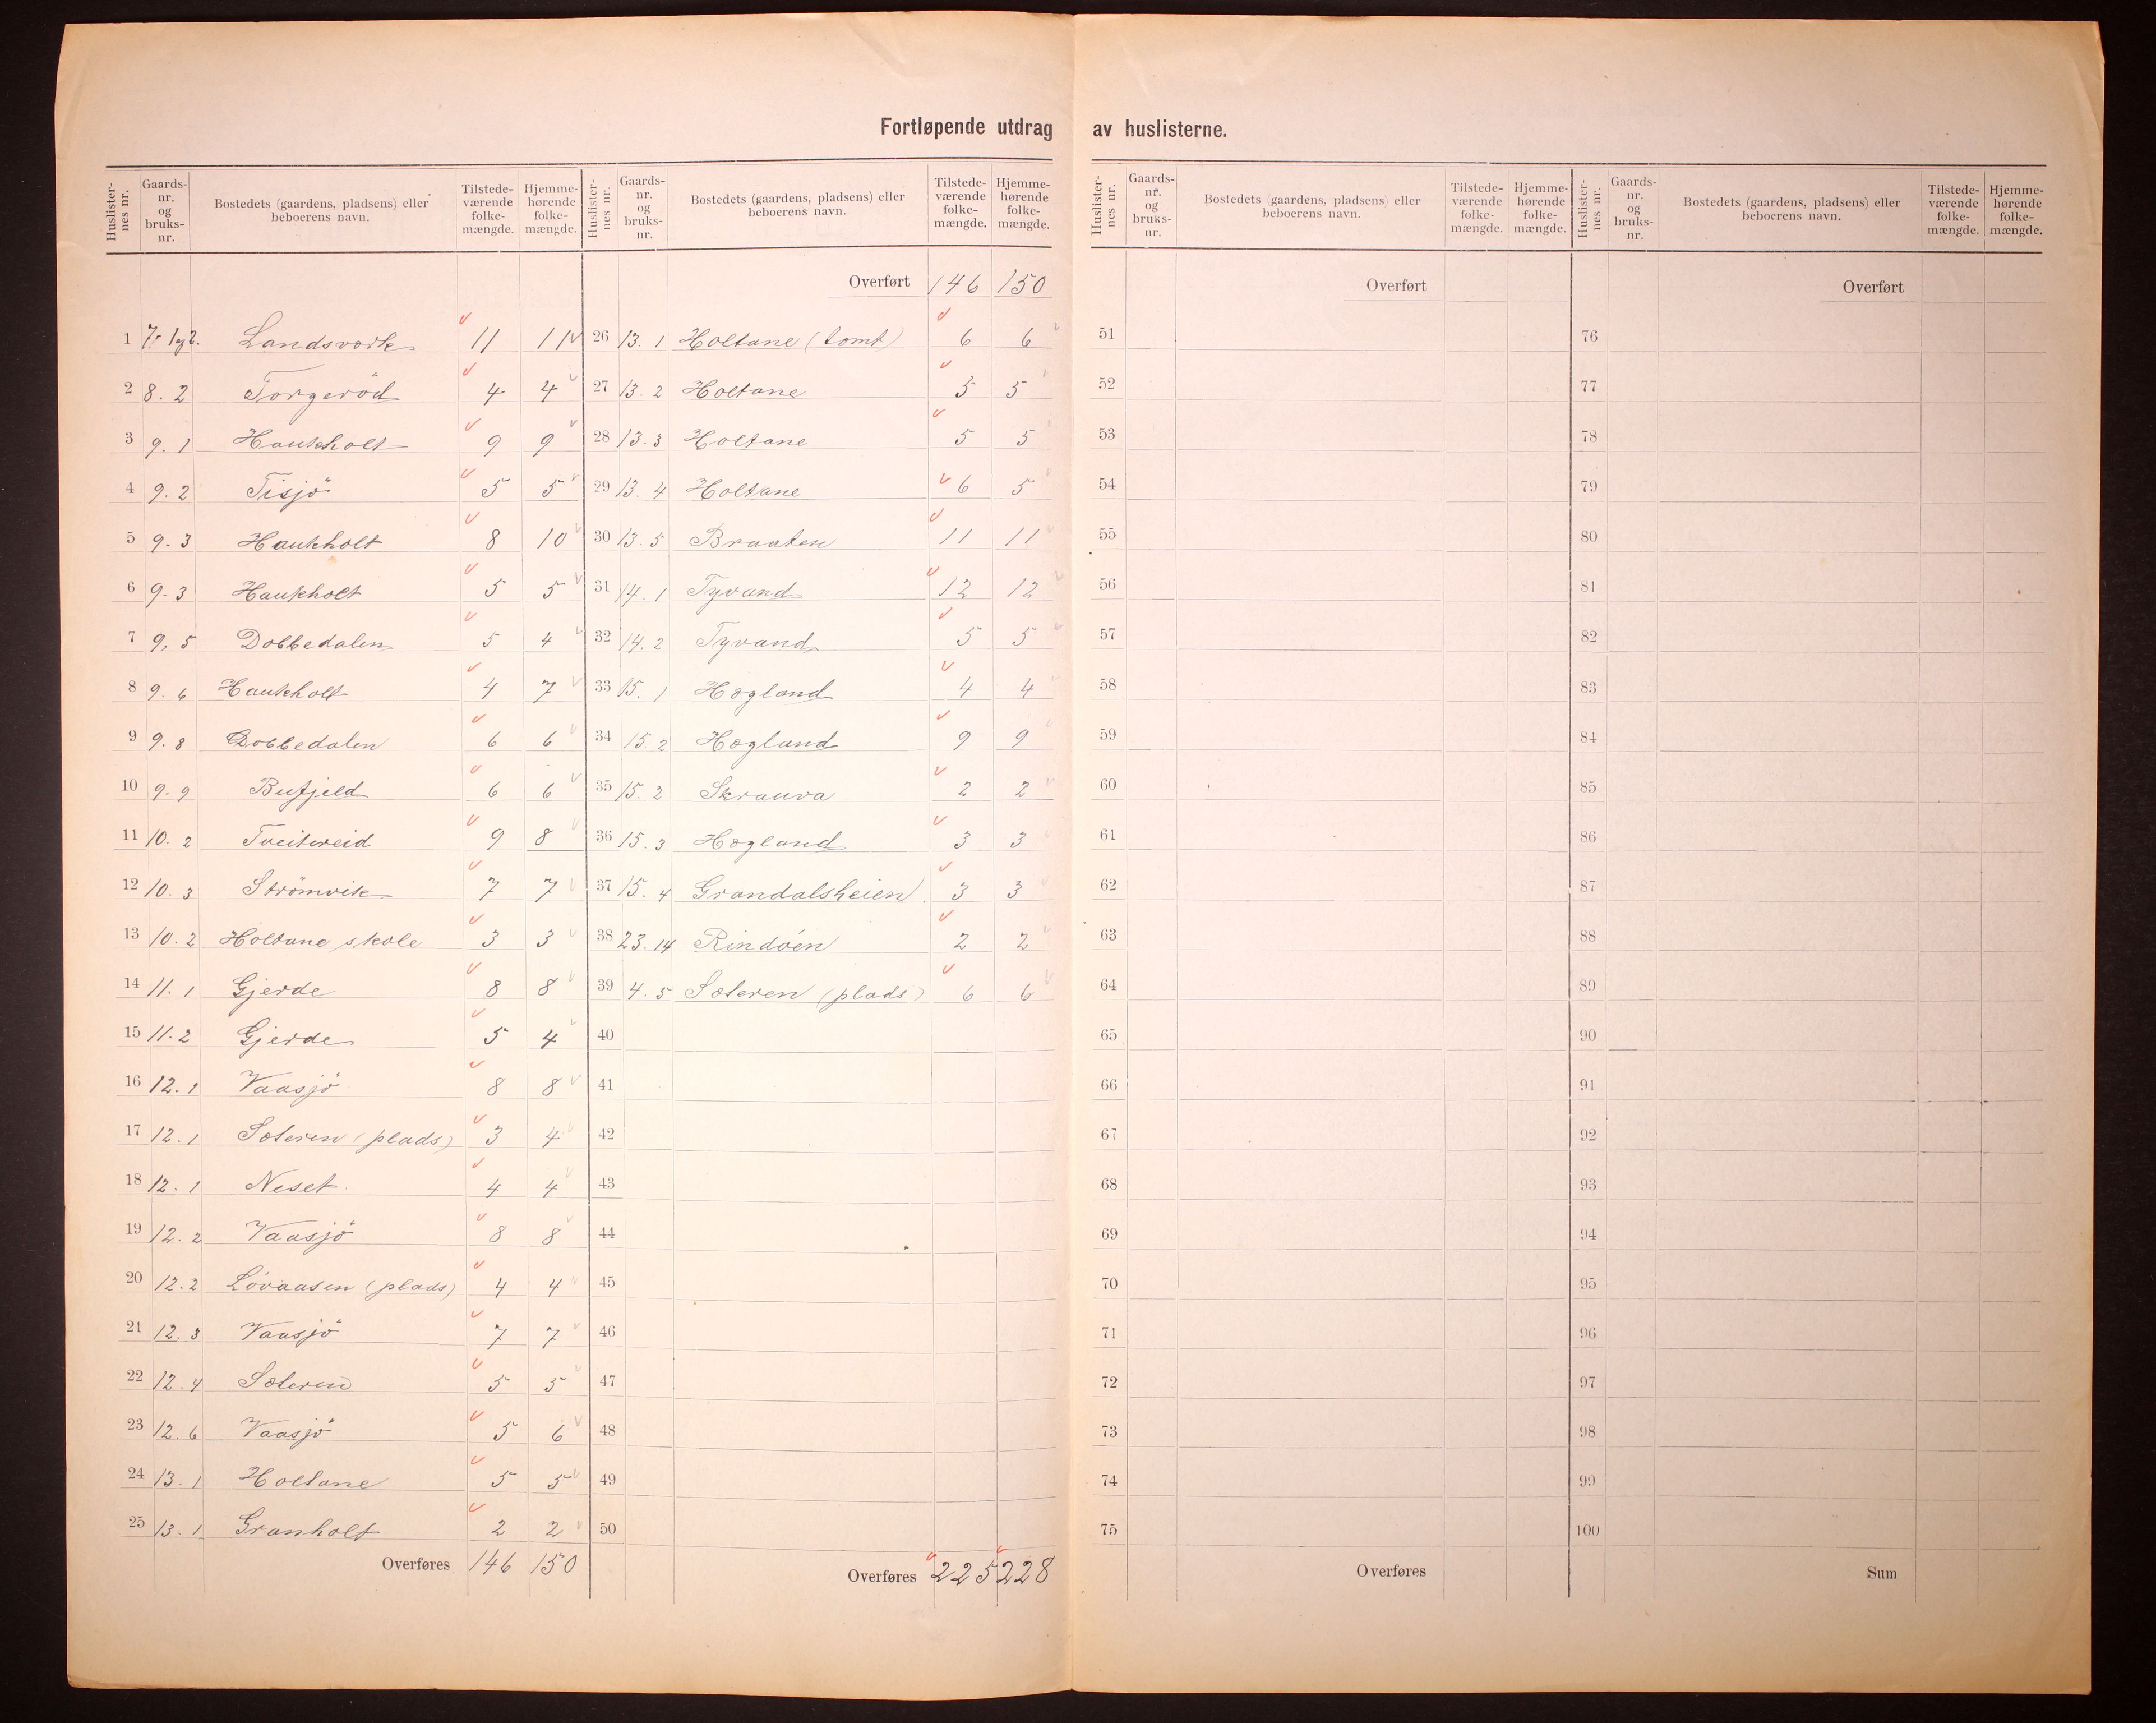 Fortløpende utdrag av huslisterne.
Huslisternes nr. | Gaards-nr. og bruks-nr. | Bostedets (gaardens, pladsens) eller beboerens navn. | Tilstedeværende folkemængde. | Hjemmehørende folkemængde.
1 7. 1 og 2. Landsverk 11 11
2 8. 2 Torgeröd 4 4
3 9. 1 Haukholt 9 9
4 9. 2 Tisjö 5 5
5 9. 3 Haukholt 8 10
6 9. 3 Haukholt 5 5
7 9. 5 Dobbedalen 5 4
8 9. 6 Haukholt 4 7
9 9. 8 Dobbedalen 6 6
10 9. 9 Bufjeld 6 6
11 10. 2 Tveitereid 9 8
12 10. 3 Strömvik 7 7
13 10. 2 Holtane skole 3 3
14 11. 1 Gjerde 8 8
15 11. 2 Gjerde 5 4
16 12. 1 Vaasjö 8 8
17 12. 1 Sæteren (plads) 3 4
18 12. 1 Neset 4 4
19 12. 2 Vaasjö 8 8
20 12. 2 Lövaasen (plads) 4 4
21 12. 3 Vaasjö 7 7
22 12. 4 Sæteren 5 5
23 12. 6 Vaasjö 5 6
24 13. 1 Holtane 5 5
25 13. 1 Granholt 2 2
Overføres 146 150
Huslisternes nr. | Gaards-nr. og bruks-nr. | Bostedets (gaardens, pladsens) eller beboerens navn. | Tilstedeværende folkemængde. | Hjemmehørende folkemængde.
Overført 146 150
26 13. 1 Holtane (tomt) 6 6
27 13. 2 Holtane 5 5
28 13. 3 Holtane 5 5
29 13. 4 Holtane 6 5
30 13. 5 Braaten 11 11
31 14. 1 Tyvand 12 12
32 14. 2 Tyvand 5 5
33 15. 1 Høgland 4 4
34 15. 2 Høgland 9 9
35 15. 2 Skrauva 2 2
36 15. 3 Høgland 3 3
37 15. 4 Grandalsheien 3 3
38 23. 14 Rindöen 2 2
39 4. 5 Sæteren (plads) 6 6
40
41
42
43
44
45
46
47
48
49
50
Overføres 225 228
Huslisternes nr. | Gaards-nr. og bruks-nr. | Bostedets (gaardens, pladsens) eller beboerens navn. | Tilstedeværende folkemængde. | Hjemmehørende folkemængde.
Overført
51
52
53
54
55
56
57
58
59
60
61
62
63
64
65
66
67
68
69
70
71
72
73
74
75
Overføres
Huslisternes nr. | Gaards-nr. og bruks-nr. | Bostedets (gaardens, pladsens) eller beboerens navn. | Tilstedeværende folkemængde. | Hjemmehørende folkemængde.
Overført
76
77
78
79
80
81
82
83
84
85
86
87
88
89
90
91
92
93
94
95
96
97
98
99
100
Sum